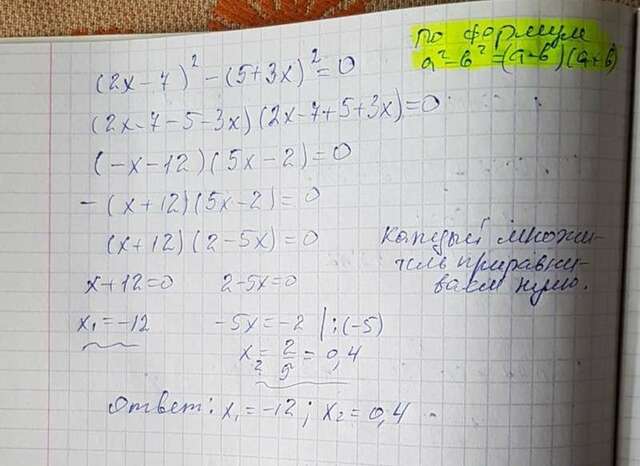 по формул
a² - b² = (a - b)(a + b)
(2x - 7)² - (5 + 3x)² = 0
(2x - 7 - 5 - 3x)(2x - 7 + 5 + 3x) = 0
(-x - 12)(5x - 2) = 0
-(x + 12)(5x - 2) = 0
(x + 12)(2 - 5x) = 0
каждый множи-
тель приравни-
ваем нулю.
x + 12 = 0 2 - 5x = 0
x₁ = -12 -5x = -2 | : (-5)
x₂ = 2/5 = 0,4
Ответ: x₁ = -12; x₂ = 0,4